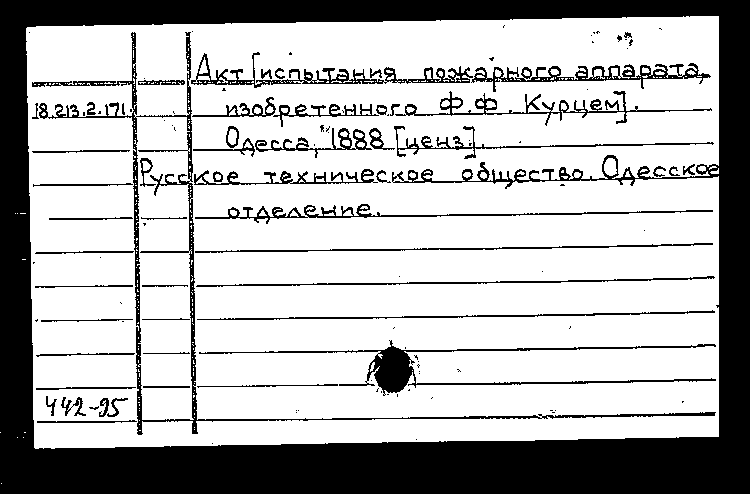 Акт [испытания пожарного аппарата,
18.213.2.171. изобретенного Ф.Ф. Курцем].
Одесса, 1888 [ценз].
Русское техническое общество. Одесское
отделение.
442-95